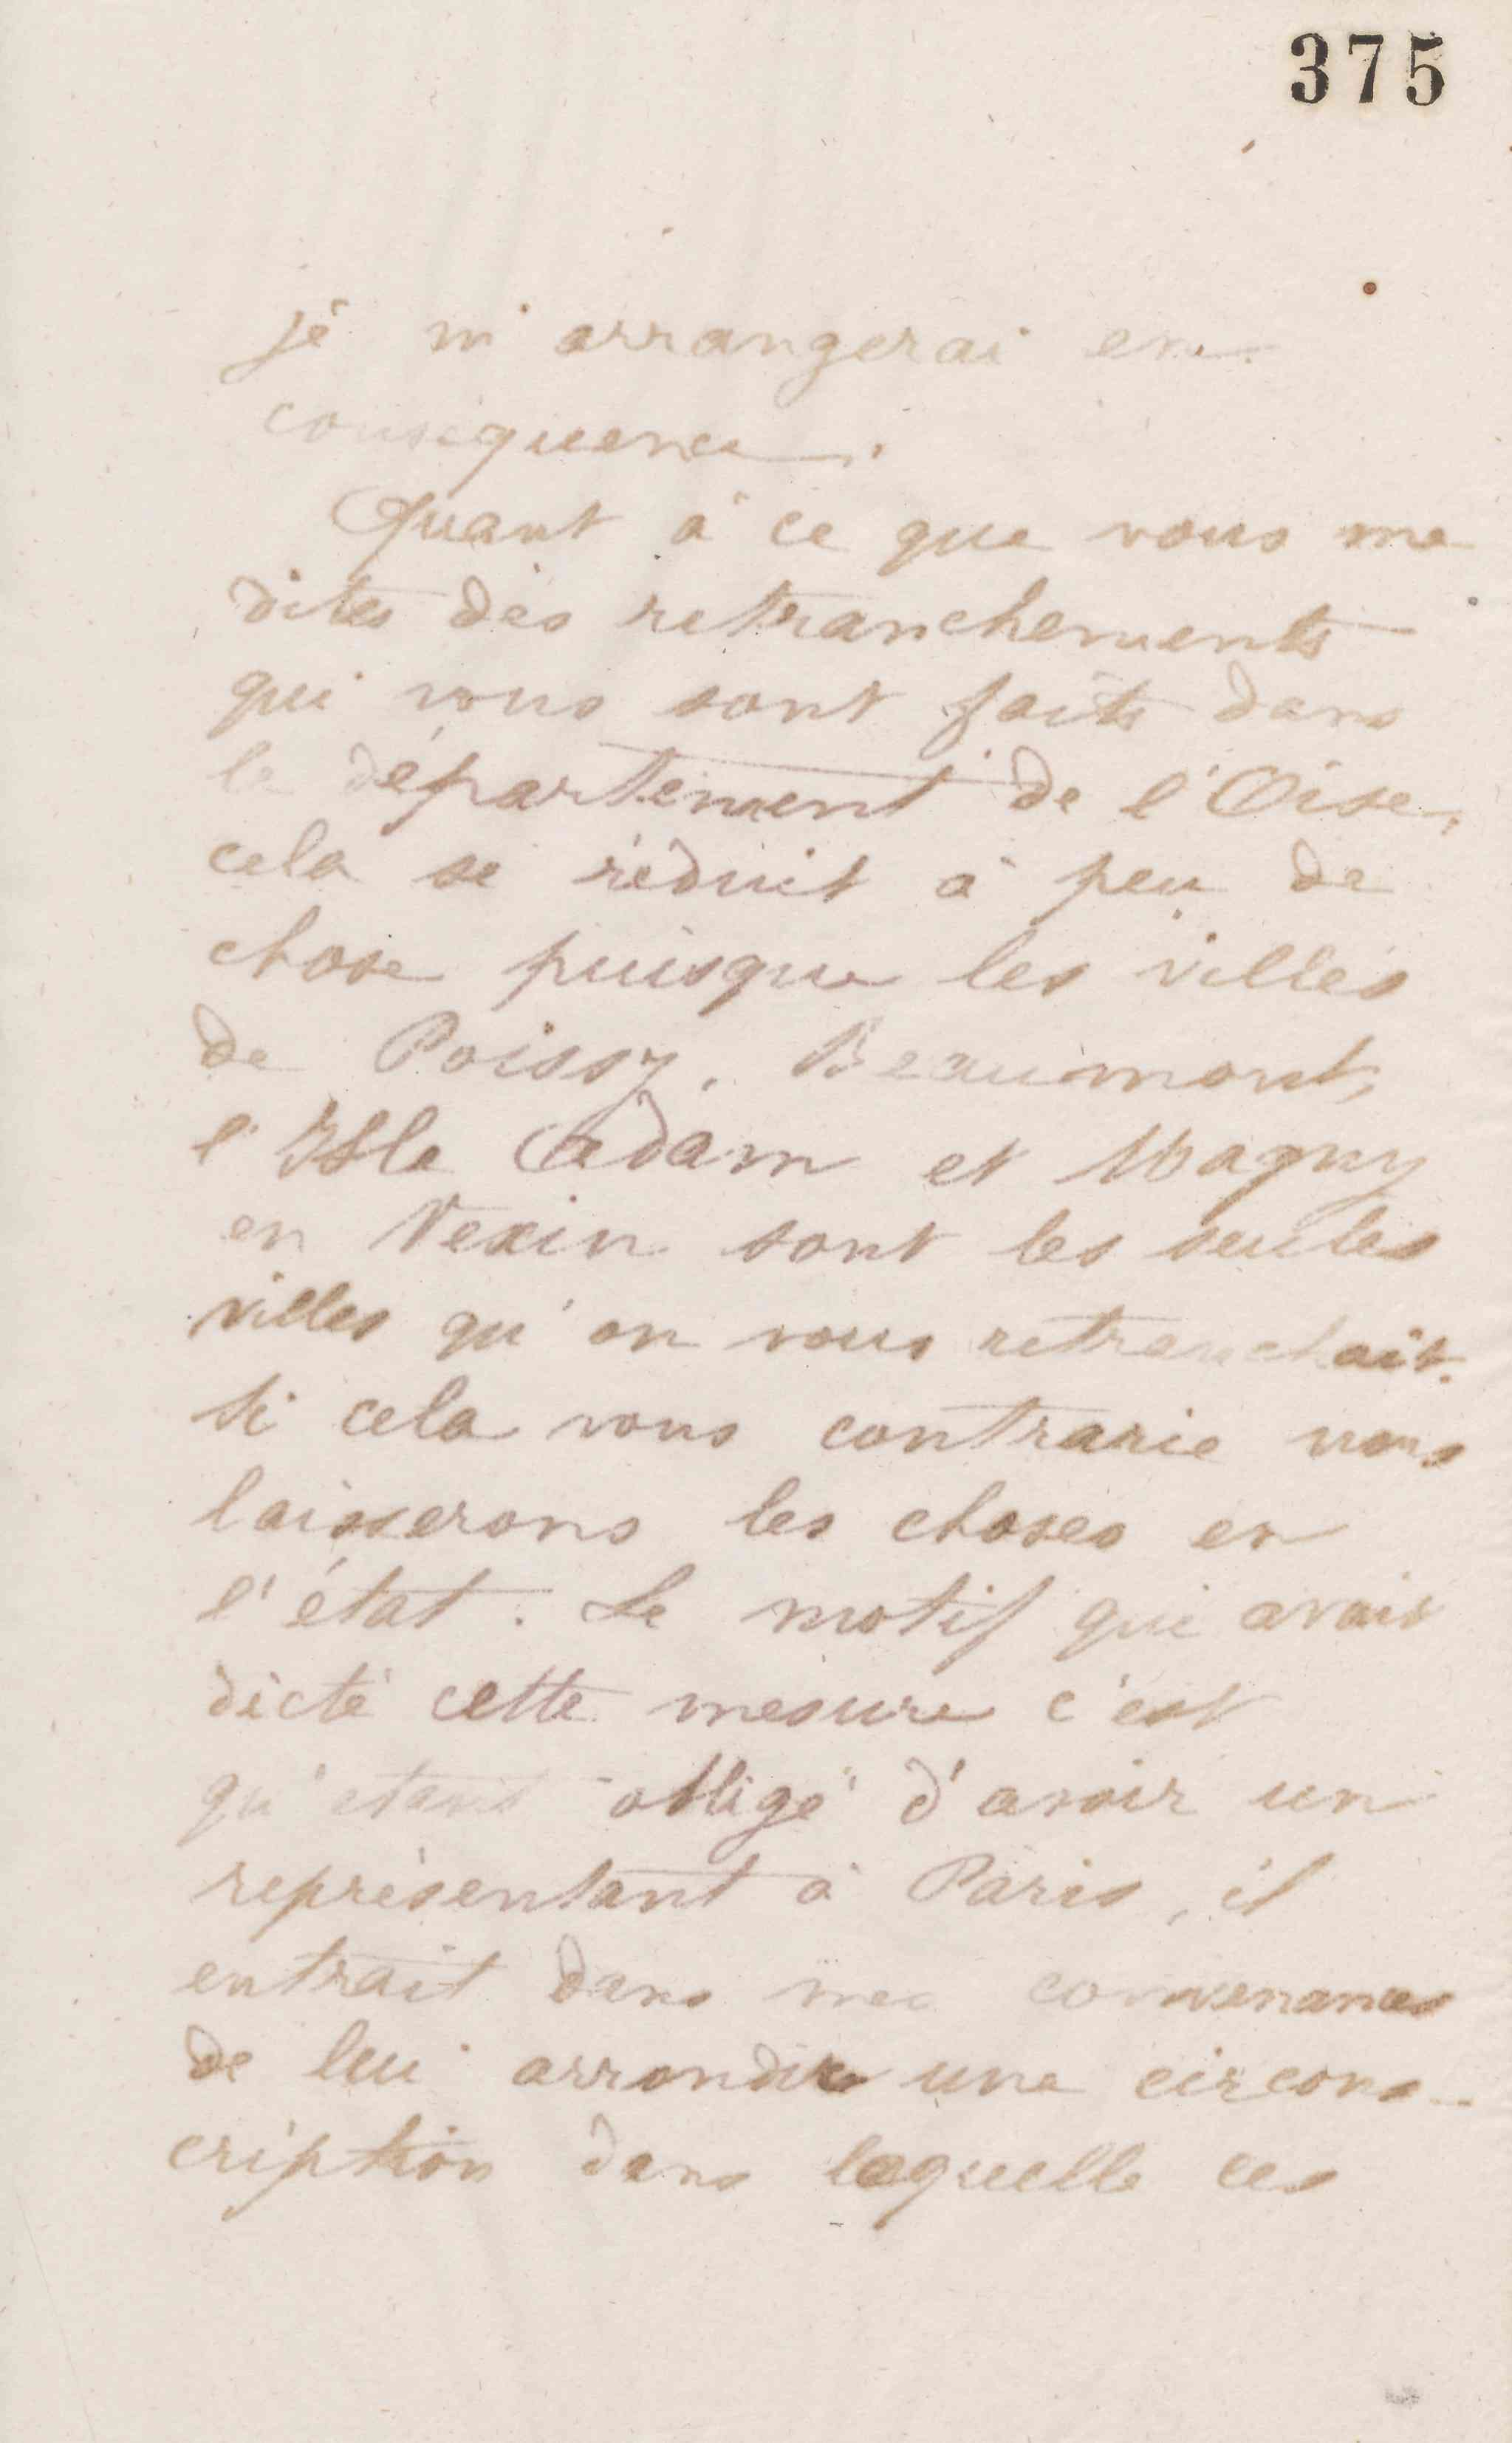 375
je m'arrangerai en
conséquence.
Quant à ce que vous me
dites des retranchements
qui vous sont faits dans
le département de l'Oise,
cela se réduit à peu de
chose puisque les villes
de Poissy, Beaumont,
l'Isle Adam et Magny
en Vexin sont les seules
villes qu'on vous retranchait.
Si cela vous contrarie nous
laisserons les choses en
l'état. Le motif qui avait
dicté cette mesure c'est
qu'étant obligé d'avoir un
représentant à Paris, il
entrait dans mes convenances
de lui arrondir une circons-
cription dans laquelle ces